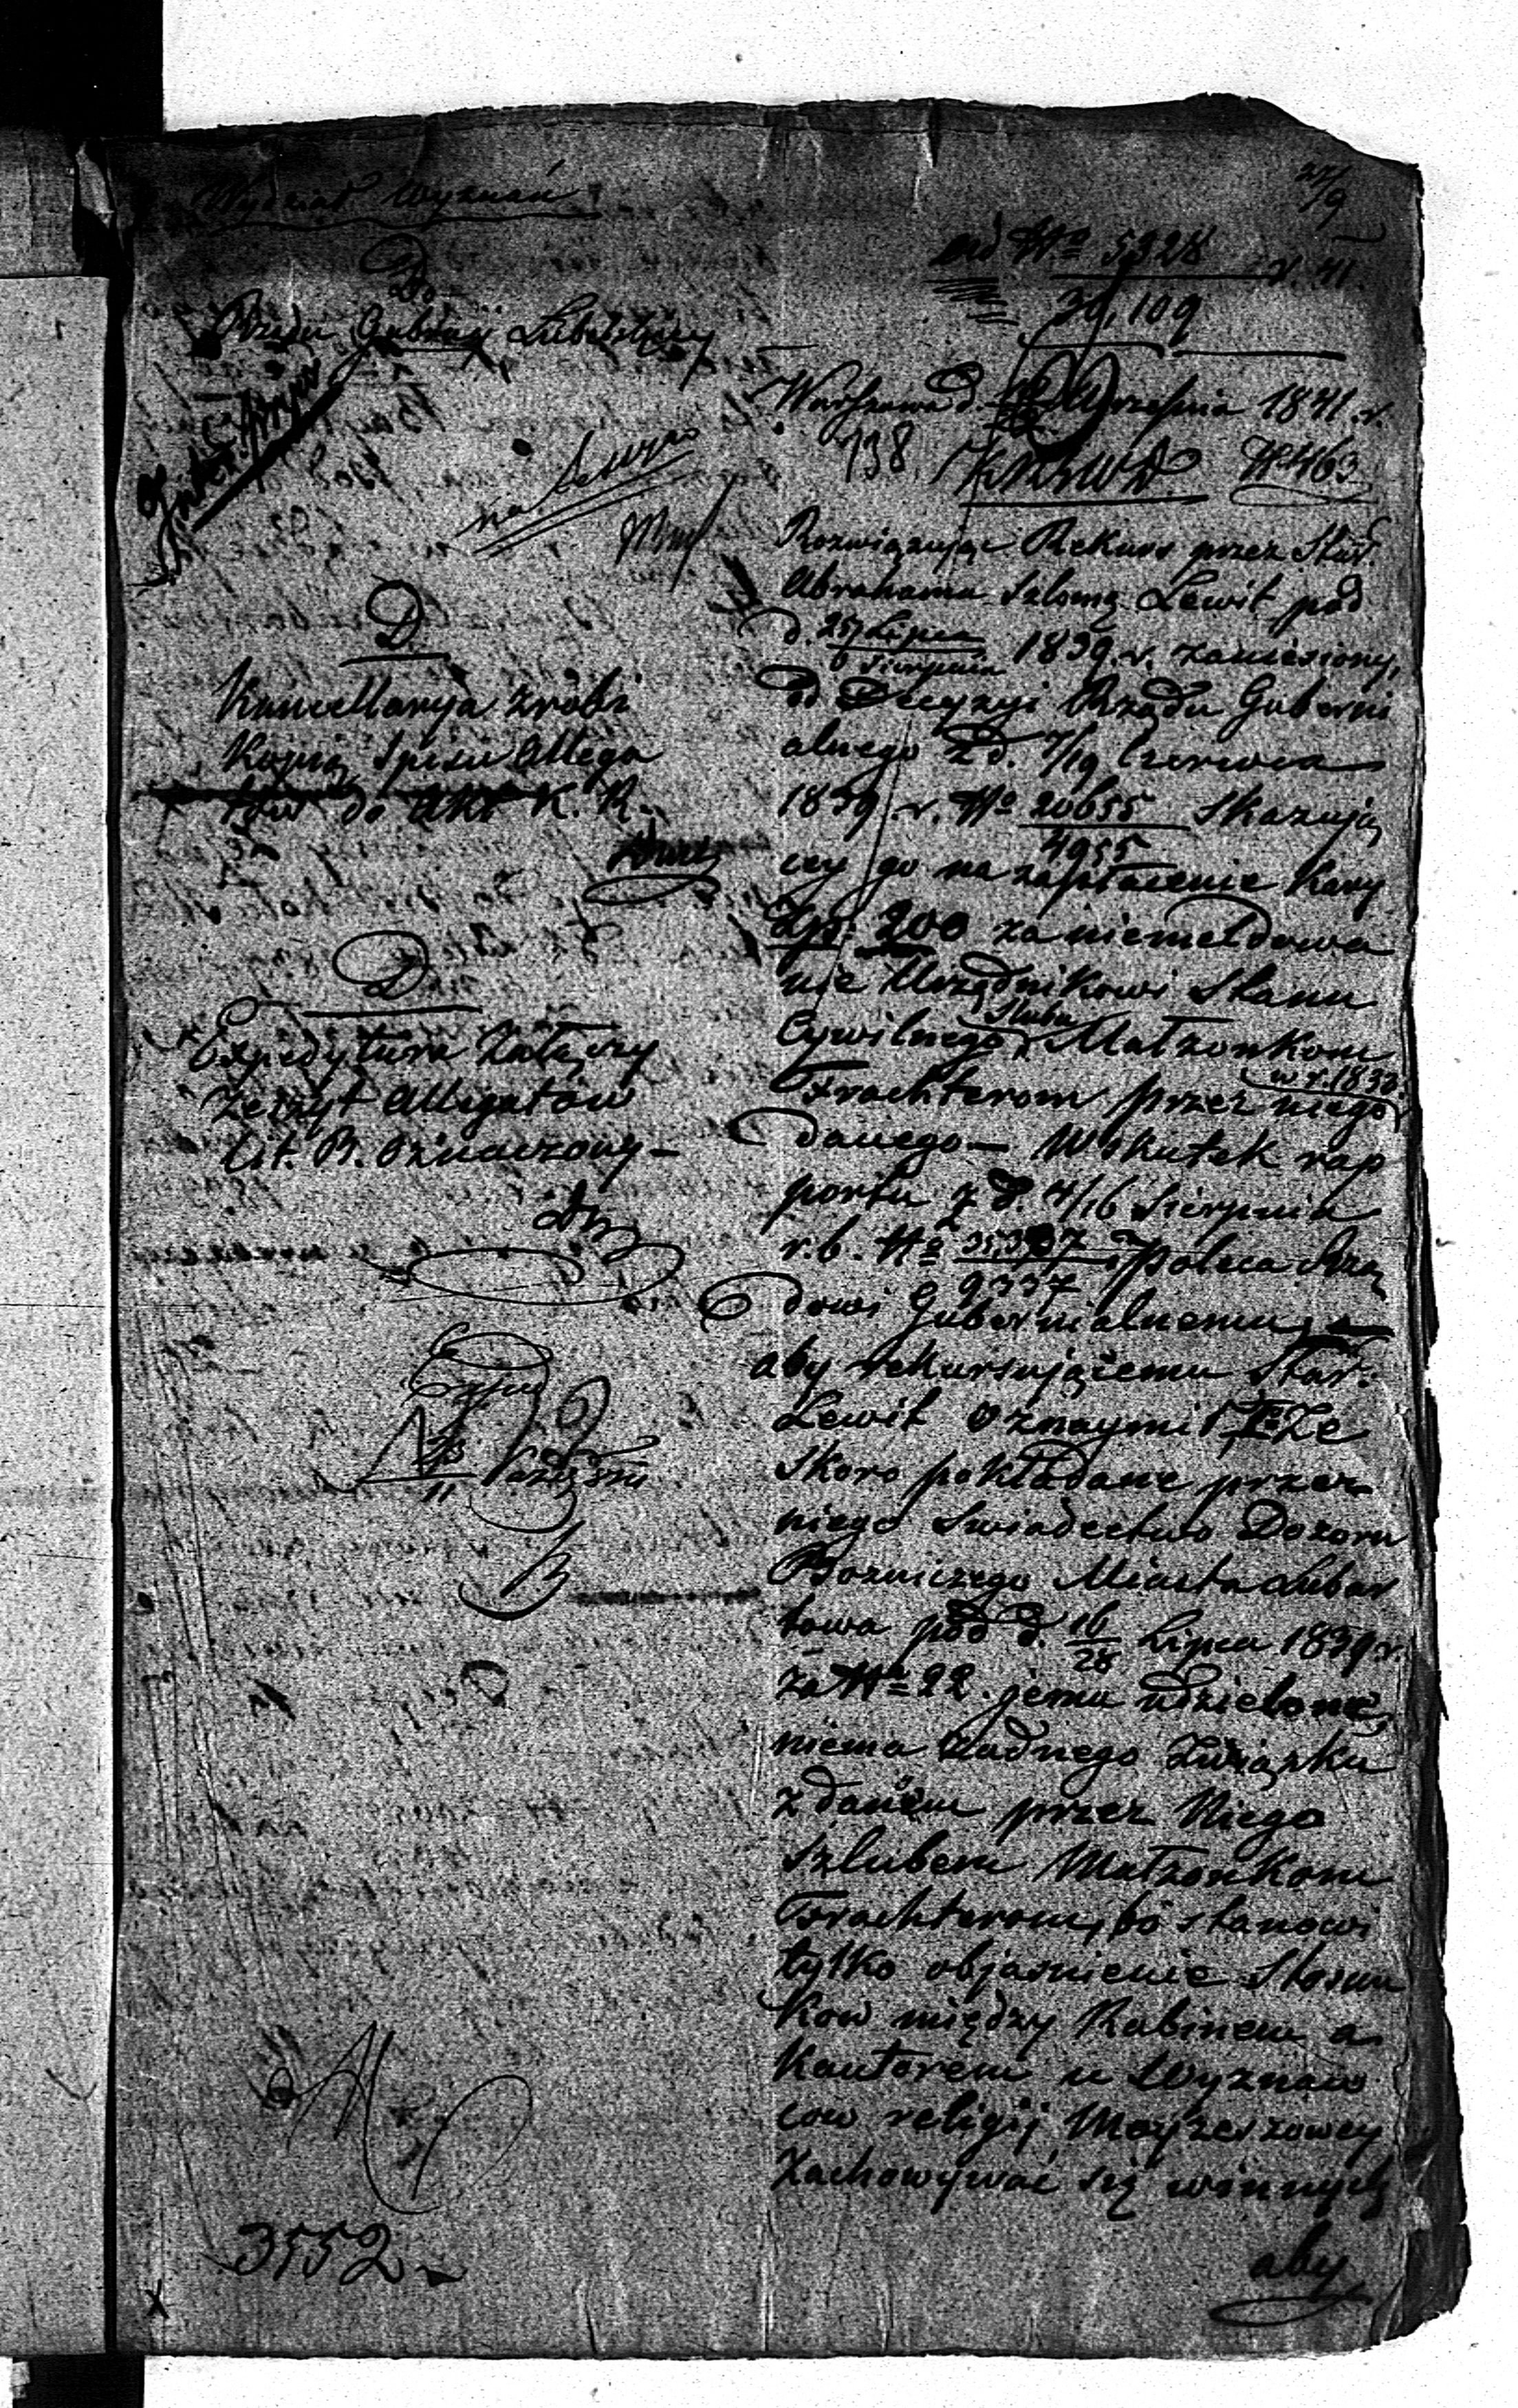 Wydział Wyznań
Do
Rządu Gubern Lubelskiego
27/9
ad No 5328
r. 41.
30,109
Warszawa d. Września 1841. r.
738. KRSWD No 463
na Sessyą
Rozwiązując Rekurs przez Star.
Abrahama Szlomę Lewit pod
d. 25 Lipca
6 Sierpnia 1839. r. zaniesiony,
od Decyzyi Rządu Guberni
alnego z d. 7/19 Czerwca
1839. r. No 20655
4955 Skazują
cey go na zapłacenie kary
Złp. 200 za niemeldowa
nie Urzędnikowi Stanu
Cywilnego Ślubu Małżonkom
Trachterom przez niego w r. 1830
danego — W skutek rap
portu z d. 4/16 Sierpnia
r. b. No
9337 poleca Rzą
dowi Gubernialnemu,
aby rekursującemu Star.
Lewit oznaymił, Że
Skoro pokładane przez
niego Swiadectwo Dozoru
Bożniczego Miasta Lubar
towa pod d. 16/28 Lipca 1839 r.
za No 22. jemu udzielone,
niema żadnego Związku
z danem przez Niego
Szlubem Małżonkom
Trachterom, bo stanowi
tylko objaśnienie Stosun
ków między Rabinem a
Kantorem u Wyznaw
ców religij Moyżeszowey
Zachowywać się winnych
aby
D.
Kancellaryja zrobi
Kopią Spisu Allega
tów do Akt K. R.
D
Expedytura Załączy
Zeszyt Alligatów
Lit. B. Oznaczony —
3552